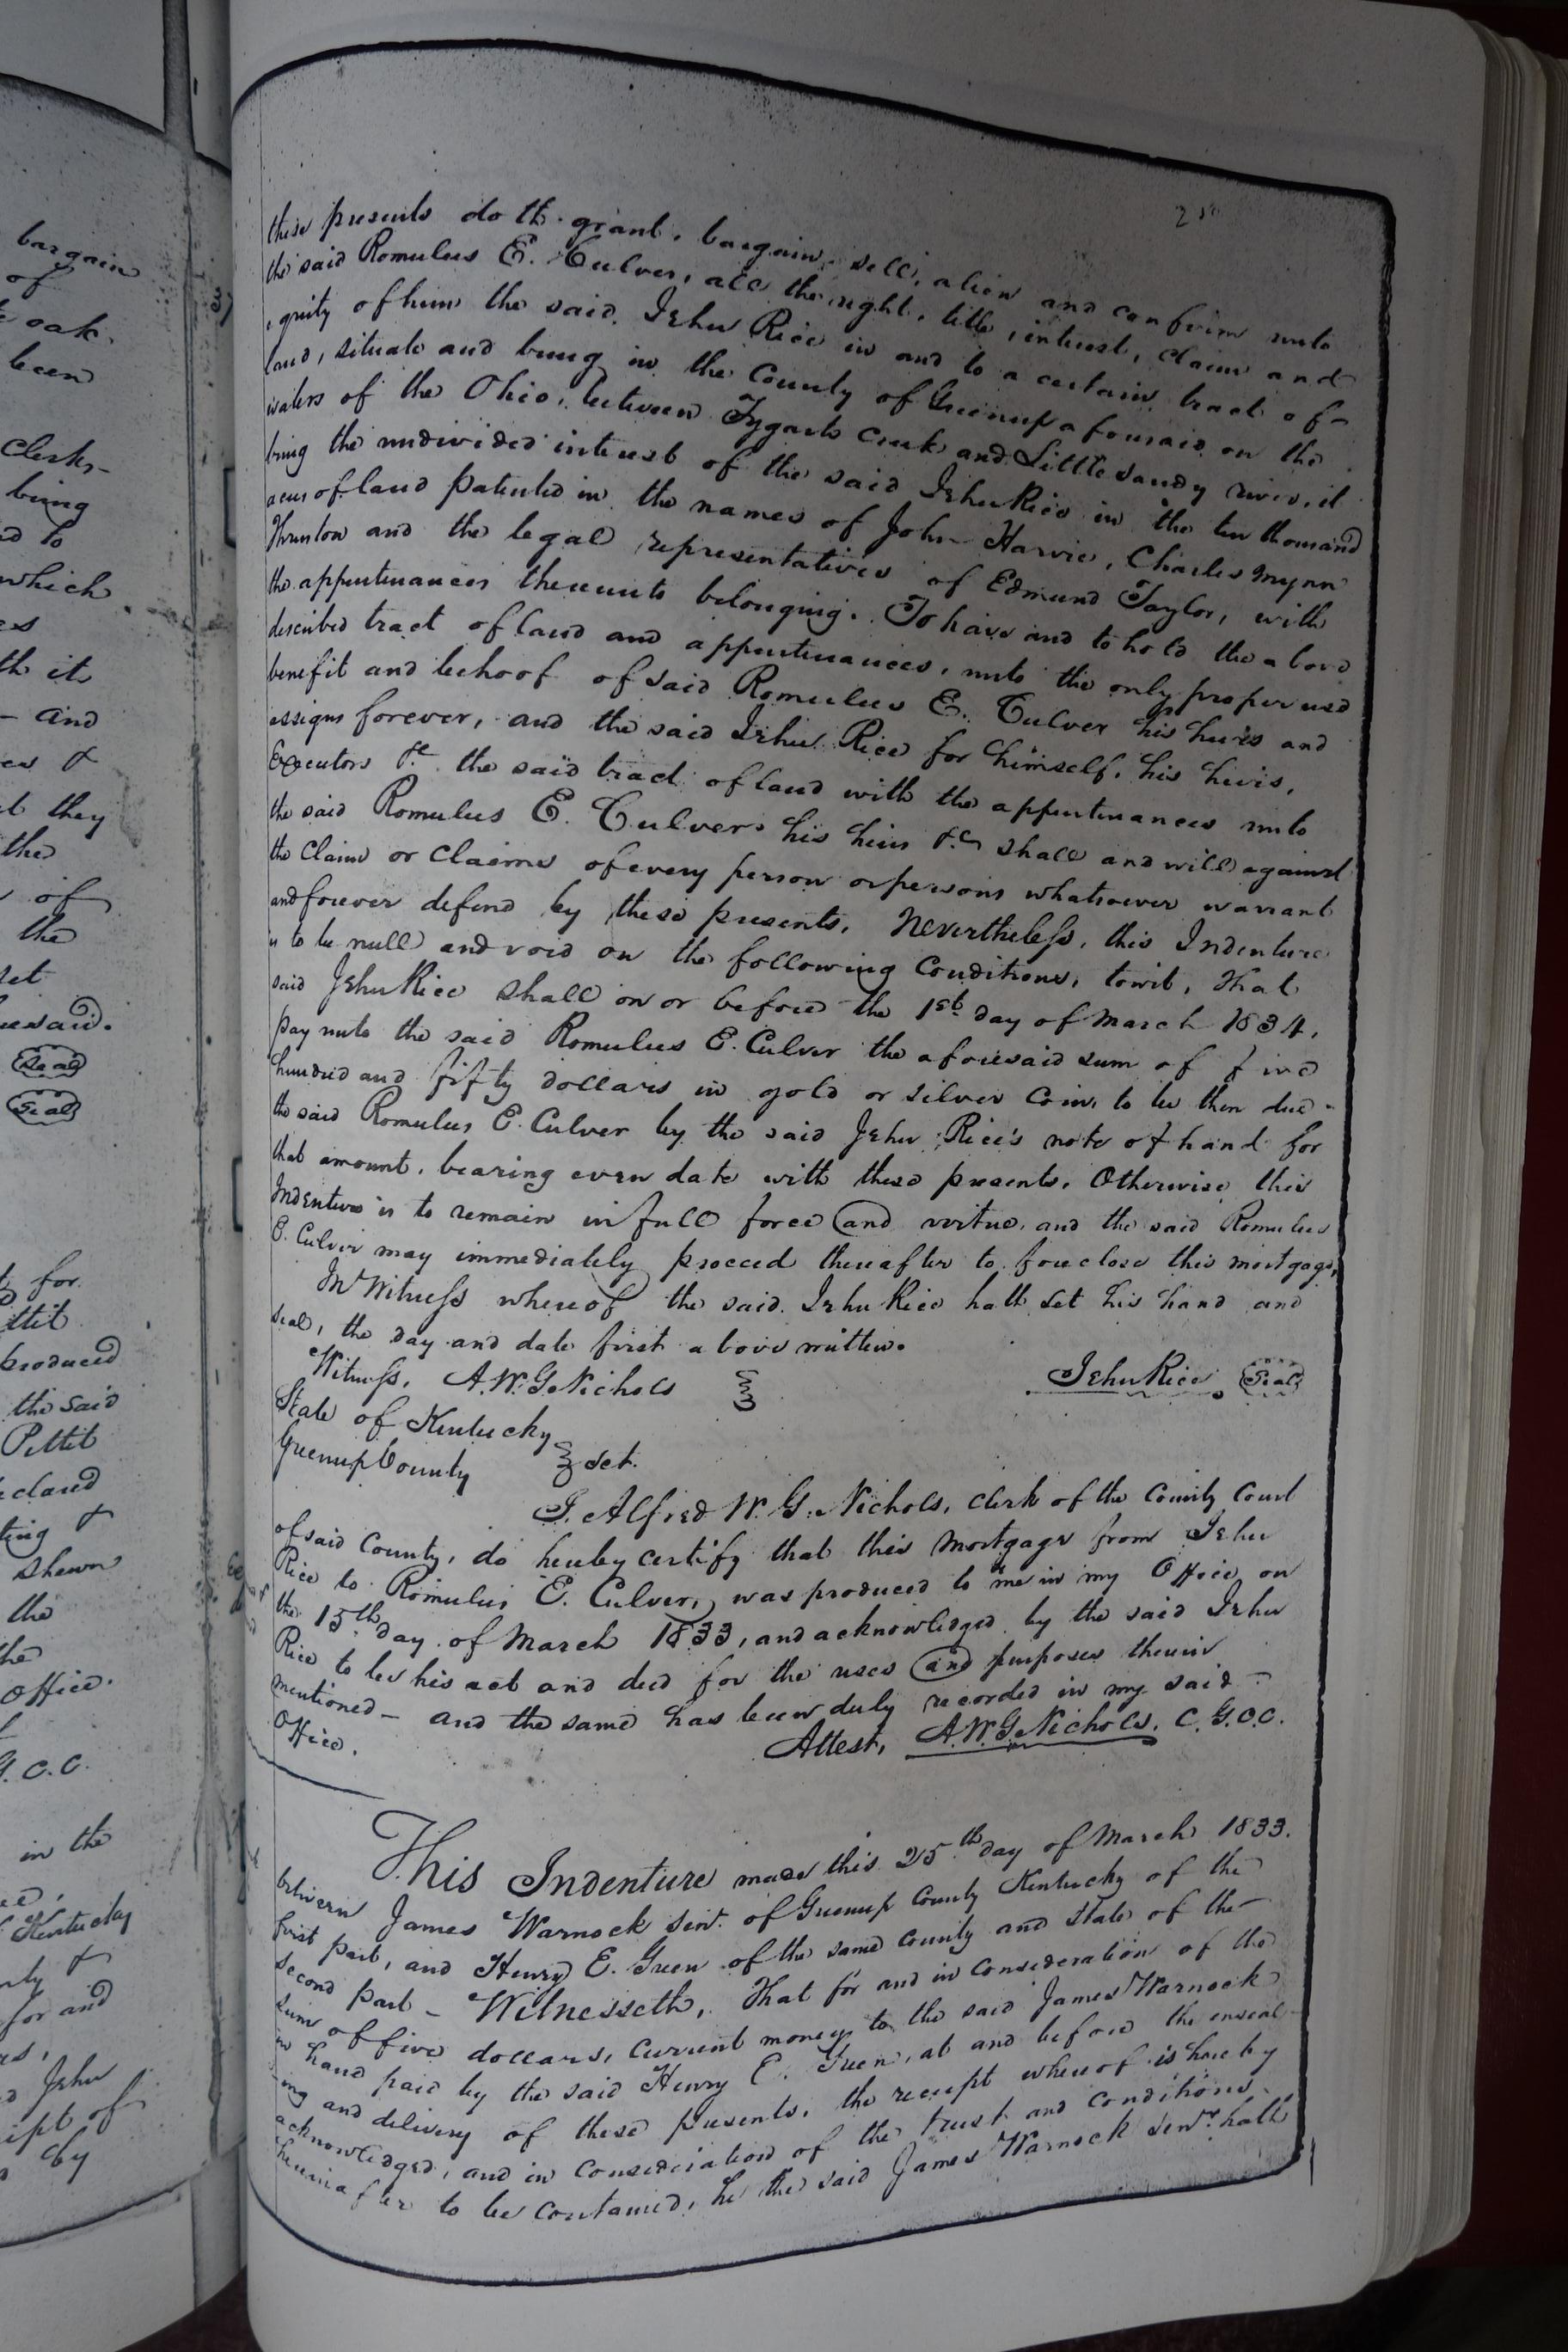 bargain
of
oak.
been
Clerks-
being
to
which
th it
- and
& 
they
the
of
the
set
Seal
Seal
for
ttit
produced
the said
Pettit
&
shewn
the
office.
G.C.C.
in the
Kentucky
&
for and
Jehu
of
by
these presents doth grant, bargain, sell, alien and confirm unto
the said Romulus E. Culver, all the right, title, interest, claim and
equity of him the said Jehu Rice in and to a certain tract of
land, situate and being in the County of Greenup aforesaid on the
waters of the Ohio, between Tygarts Creek and Little Sandy river, it
being the undivided interest of the said Jehu Rice in the ten thousand
acres of land patented in the names of John Harvie, Charles Mynn
Thruston and the legal representatives of Edmund Taylor, with
the appurtenances thereunto belonging. To have and to hold the above
described tract of land and appurtenances, unto the only proper use
benefit and behoof of said Romulus E. Culver his heirs and
assigns forever, and the said Jehu Rice for himself, his heirs,
Executors &c the said tract of land with the appurtenances unto
the said Romulus E. Culver his heirs &c shall and will against
the claim or claims of every person or persons whatsoever warrant
and forever defend by these presents, Nevertheless, this Indenture
is to be null and void on the following conditions, towit, That
said Jehu Rice shall on or before the 1st day of March 1834,
pay unto the said Romulus E. Culver the aforesaid sum of five
hundred and fifty dollars in gold or silver coin, to be then due
the said Romulus E. Culver by the said Jehu Rice's note of hand for
that amount, bearing even date with these presents, Otherwise this
Indenture is to remain in full force and virtue, and the said Romulus
E. Culver may immediately proceed thereafter to foreclose this mortgage,
In Witness whereof the said Jehu Rice hath set his hand and
seal, the day and date first above written.
Witness, A.W.G. Nichols Jehu Rice Seal
State of Kentucky
Greenup County sct.
I. Alfred W. G. Nichols, clerk of the County Court
of said County, do hereby certify that this mortgage from Jehu
Rice to Romulus E. Culver, was produced to me in my Office on
the 15th day of March 1833, and acknowledged by the said Jehu
Rice to be his act and deed for the uses and purposes therein
mentioned - and the same has been duly recorded in my said
Office.
Attest, A.W.G. Nichols, C.G.C.C.
This Indenture made this 25th day of March 1833.
between James Warnock Senr. of Greenup County Kentucky of the
first part, and Henry E. Green of the same County and State of the
second part - Witnesseth, That for and in consideration of the
sum of five dollars, current money to the said James Warnock
in hand paid by the said Henry E. Green, at and before the enseal-
ing and delivery of these presents, the receipt whereof is hereby
acknowledged, and in consideration of the trust and conditions
hereinafter to be contained, he the said James Warnock Senr. hath